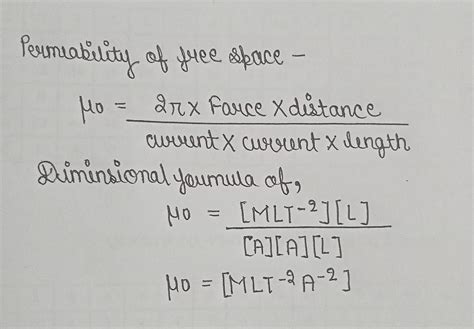 Permiability of free space -
μo = 2π x Farce x distance
current x current x length
Diminsional formula of,
μo = [MLT⁻²][L]
[A][A][L]
μo = [MLT⁻² A⁻²]